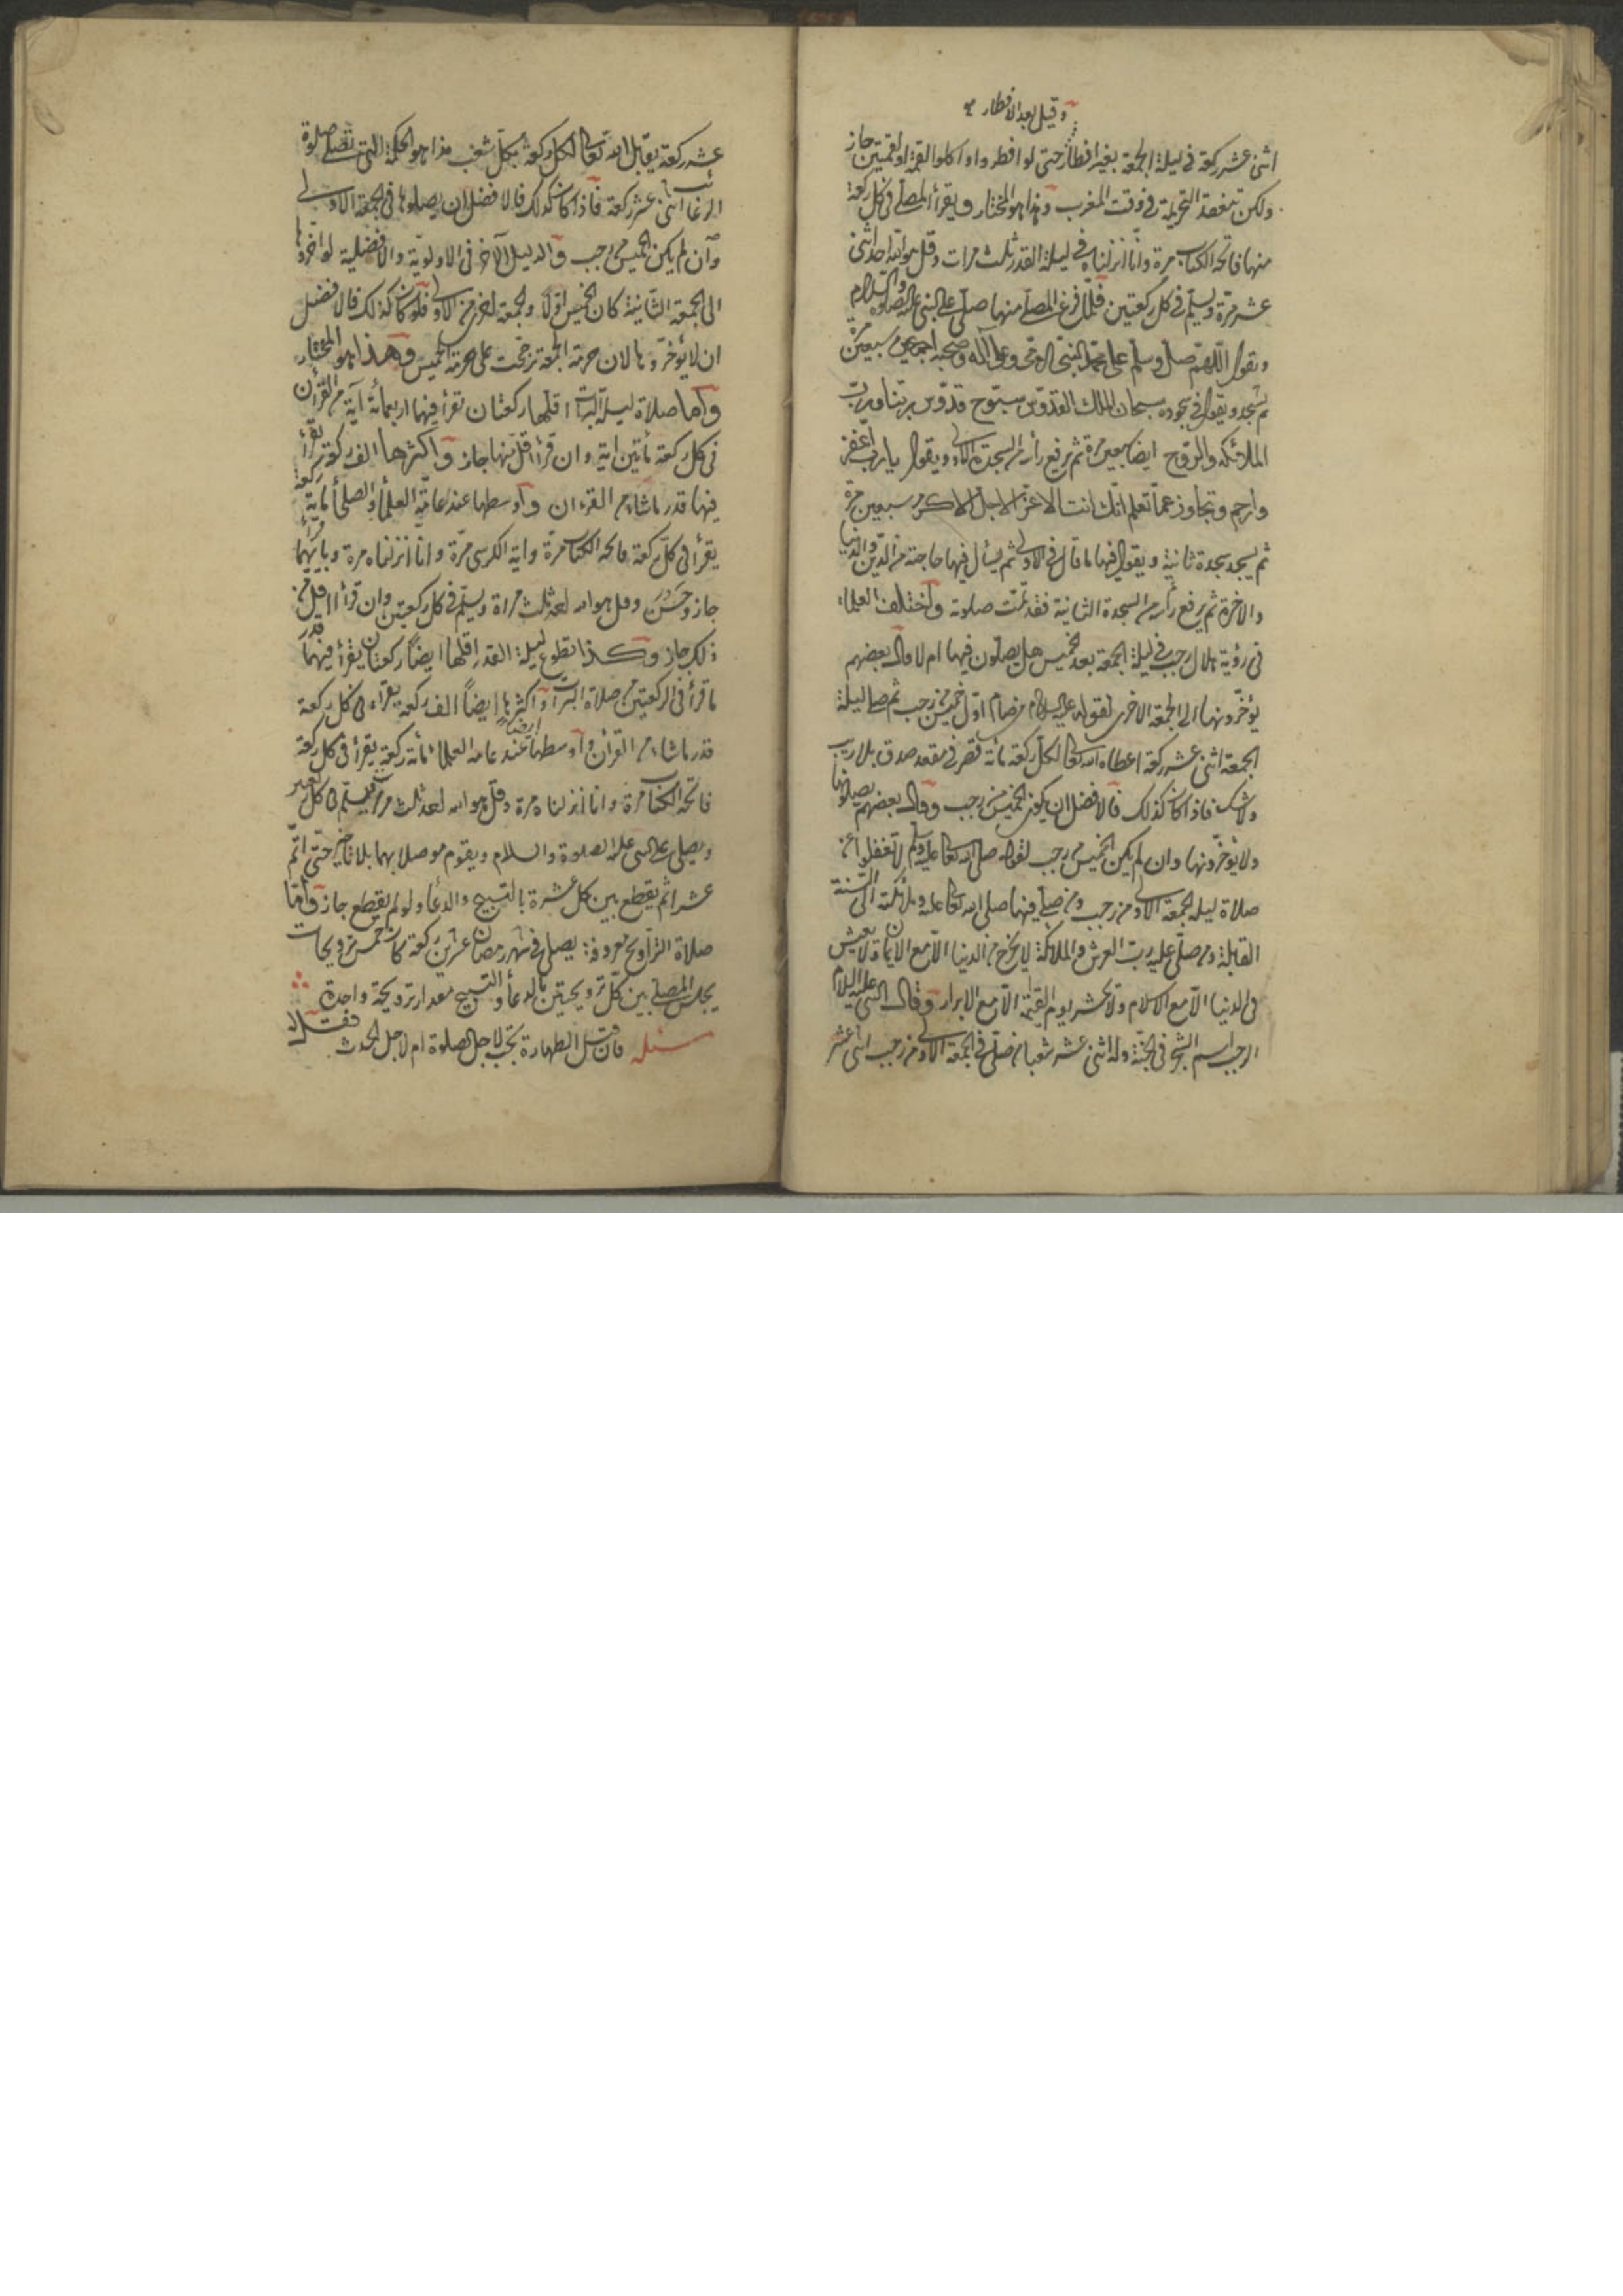 وقيل بعد الافطار
اثنى عشر ركعة فى ليلة الجمعة بغير افطار حتى لو افطروا او اكلوا لقمة او لقمتين جاز
ولكن تنعقد التحريمة فى وقت المغرب وهذا هو المختار ويقرأ المصلى فى كل ركعة
منها فاتحة الكتاب مرة وانا انزلناه فى ليلة القدر ثلث مرات وقل هو الله احد اثنى
عشر مرة ويسلم فى كل ركعتين فلما فرغ المصلى منها صلى على النبى عليه الصلوة والسلام
ويقول اللهم صل وسلم على محمد النبى الامى وعلى آله وصحبه اجمعين سبعين مرة
ثم يسجد ويقول فى سجوده سبحان الملك القدوس سبوح قدوس ربنا ورب
الملائكة والروح ايضا سبعين مرة ثم يرفع رأسه من السجدة الاولى ويقول يا رب اغفر
وارحم وتجاوز عما تعلم انك انت الاعز الاجل الاكرم سبعين مرة
ثم يسجد سجدة ثانية ويقول فيها ما قال فى الاولى ثم يسأل فيها حاجته من الدين والدنيا
والاخرة ثم يرفع رأسه من السجدة الثانية فقد تمت صلوته واختلف العلماء
فى رؤية هلال رجب فى ليلة الجمعة بعد خميس هل يصلون فيها ام لا قال بعضهم
يؤخرونها الى الجمعة الاخرى لقوله عليه السلام من صام اول خميس من رجب ثم صلى ليلة
الجمعة اثنى عشر ركعة اعطاه الله تعالى لكل ركعة مائة قصر فى مقعد صدق بلا ريب
ولا شك فاذا كان كذلك فالافضل ان يكون الخميس من رجب وقال بعضهم يصلونها
ولا يؤخرونها وان لم يكن الخميس من رجب لقوله صلى الله تعالى عليه وسلم لا تغفلوا عن
صلاة ليلة الجمعة الاولى من رجب ومن صلى فيها صلى الله تعالى عليه وملائكته الى السنة
القابلة ومن صلى عليه رب العرش والملائكة لا يخرج من الدنيا الا مع الايمان ولا يعيش
فى الدنيا الا مع الاسلام ولا يحشر يوم القيمة الا مع الابرار وقال النبى عليه السلام
الرجب اسم الشجر فى الجنة وله اثنى عشر شعبا من صلى فى الجمعة الاولى من رجب اثنى عشر
عشر ركعة يقابل الله تعالى لكل ركعة بكل شعب هذا هو الحكمة التى تصلى صلوة
الرغائب اثنى عشر ركعة فاذا كان كذلك فالافضل ان يصلوها فى الجمعة الاولى
وان لم يكن الخميس من رجب والدليل الآخر فى الاولوية والافضلية لو اخروها
الى الجمعة الثانية كان الخميس اولا والجمعة اخرى من الاولى فلو كان كذلك فالافضل
ان لا يؤخروها لان حرمة الجمعة ترجحت على حرمة الخميس وهذا هو المختار
واما صلاة ليلة البرات اقلها ركعتان تقرأ فيهما اربعمائة آية من القرآن
فى كل ركعة مأتين اية وان قرأ اقل منها جاز واكثرها الف ركعة يقرأ
فيها قدر ما شاء من القرءان واوسطها عند عامة العلماء والصلحاء مائة ركعة
يقرأ فى كل ركعة فاتحة الكتاب مرة واية الكرسى مرة وانا انزلناه مرة وبايهما قرأ
جاز وحسن وقل هو الله احد ثلث مراة ويسلم فى كل ركعتين وان قرأ اقل من
ذلك جاز وكذا تطوع ليلة القدر اقلها ايضاً ركعتان يقرأ فيهما قدر
ما قرأ فى الركعتين من صلاة البرات واكثرها ايضاً الف ركعة يقراء فى كل ركعة
قدر ما شاء من القرآن واوسطها ايضاً عند عامة العلماء مأئة ركعة يقرأ فى كل ركعة
فاتحة الكتاب مرة وانا انزلناه مرة وقل هو الله احد ثلث مرات ويسلم فى كل ركعتين
ويصلى على النبى عليه الصلوة والسلام ويقوم موصلا بهما بلا تأخير حتى اتم
عشرا ثم يقطع بين كل عشرة بالتسبيح والدعاء ولو لم يقطع جاز واما
صلاة التراويح معروفة يصلى فى شهر رمضان عشرين ركعة كان خمس ترويحات
يجلس المصلى بين كل ترويحتين بالدعاء والتسبيح مقدار ترويحة واحدة
مسئله فان قيل الطهارة تجب لاجل الصلوة ام لاجل الحدث فقل